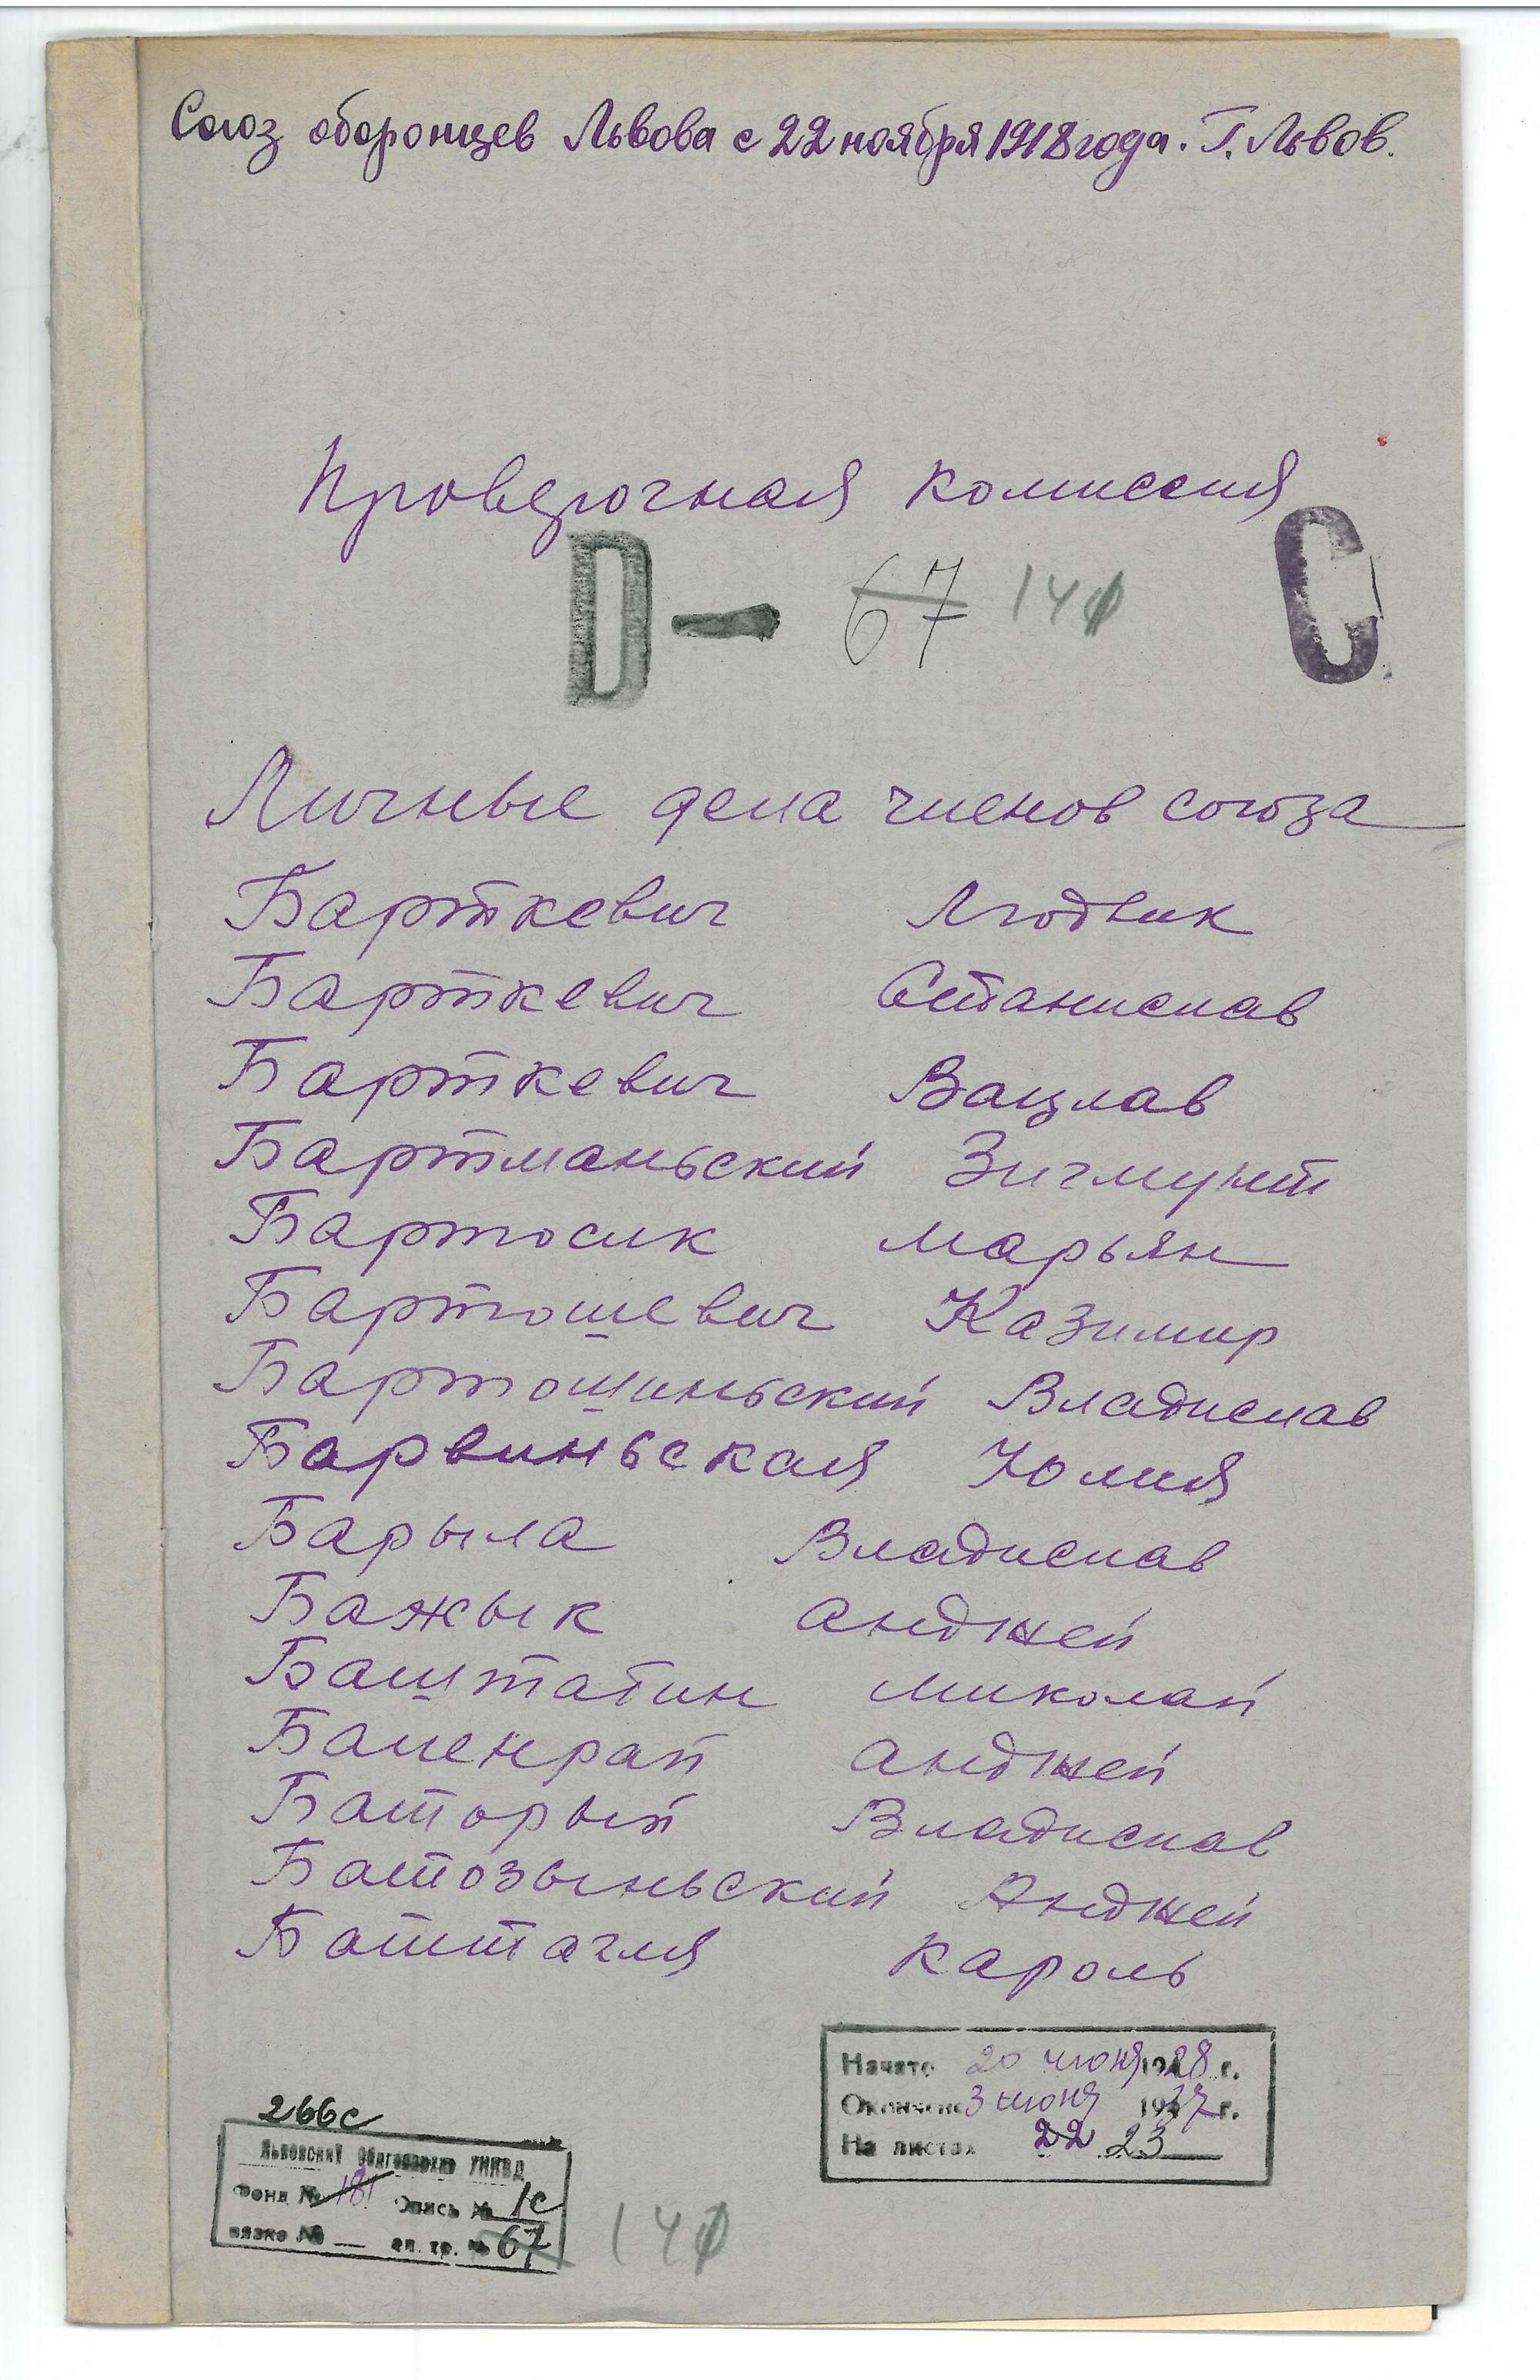 Союз оборонцев Львова с 22 ноября 1918 года. Г. Львов.
Проверочная комиссия
D — 67 140 C
Личные дела членов союза
Барткевич Людвик
Барткевич Станислав
Барткевич Вацлав
Бартманьский Зигмунт
Бартосик Марьян
Бартошевич Казимир
Бартошиньский Владислав
Барвиньская Юлия
Барыла Владислав
Бажык Анджей
Баштатин Миколай
Анджей
Баторый Владислав
Батозыньский Анджей
Баттаглия Кароль
Начато 20 июня 1928 г.
Окончено 3 июня 1937 г.
На листах 22 23
266с
Львовский Облгосархив УНКВД
Фонд № 181 Опись № 1с
вязка № — ед. хр. № 67
140